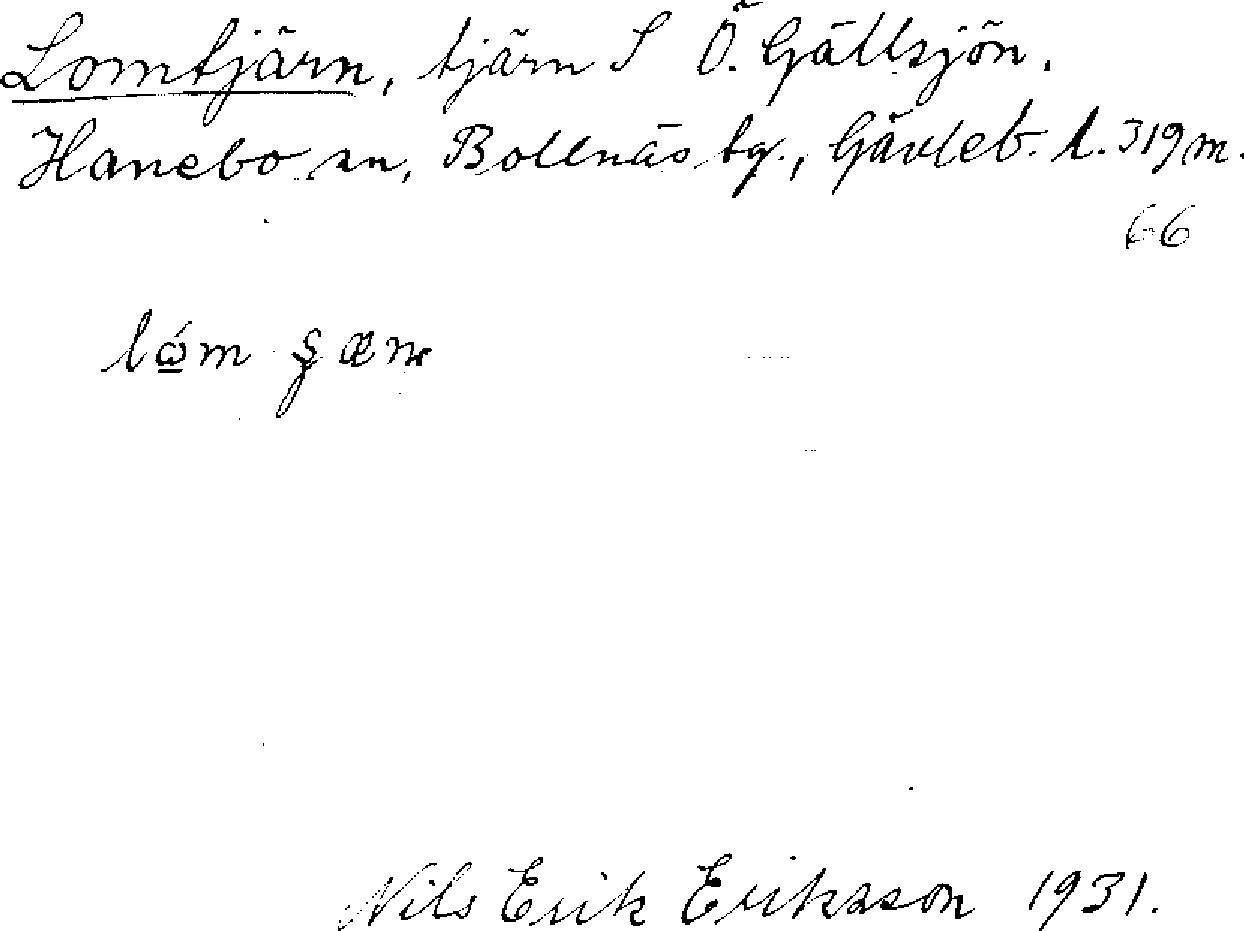 Lomtjärn, tjärn S Ö. Gällsjön.
Hanebo sn, Bollnäs tg., Gävleb. l. 319 m.
66
Nils Erik Eriksson 1931.